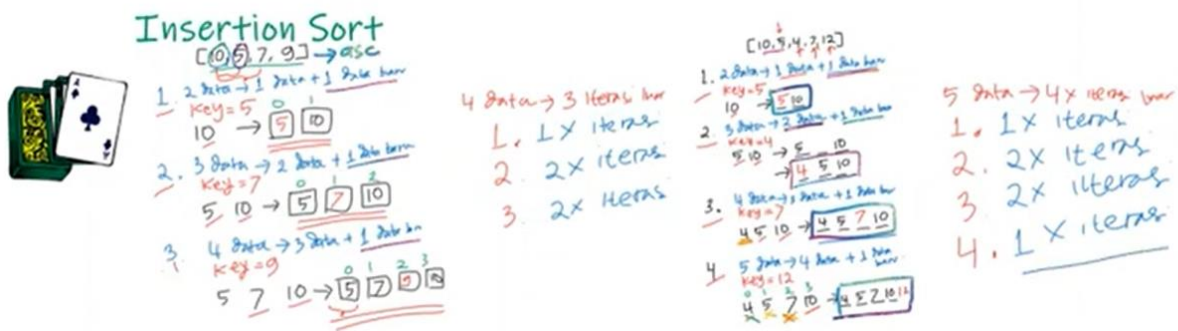 Insertion Sort
[10, 5, 7, 9] → asc
1. 2 data → 1 data + 1 data baru
key=5
0 1
10 → 5 10
2. 3 data → 2 data + 1 data baru
key=7
0 1 2
5 10 → 5 7 10
3. 4 data → 3 data + 1 data baru
key=9
0 1 2 3
5 7 10 → 5 7 9 10
4 data → 3 iteras luar
1. 1x iteras
2. 2x iteras
3. 2x iteras
[10, 5, 4, 7, 12]
1. 2 data → 1 data + 1 data baru
key=5
10 → 5 10
2. 3 data → 2 data + 1 data baru
key=4
5 10 → 5 _ 10
→ 4 5 10
3. 4 data → 3 data + 1 data baru
key=7
4 5 10 → 4 5 7 10
4 5 data → 4 data + 1 data baru
key=12
0 1 2 3
4 5 7 10 → 4 5 7 10 12
5 data → 4x iteras luar
1. 1x iteras
2. 2x iteras
3. 2x iteras
4. 1x iteras